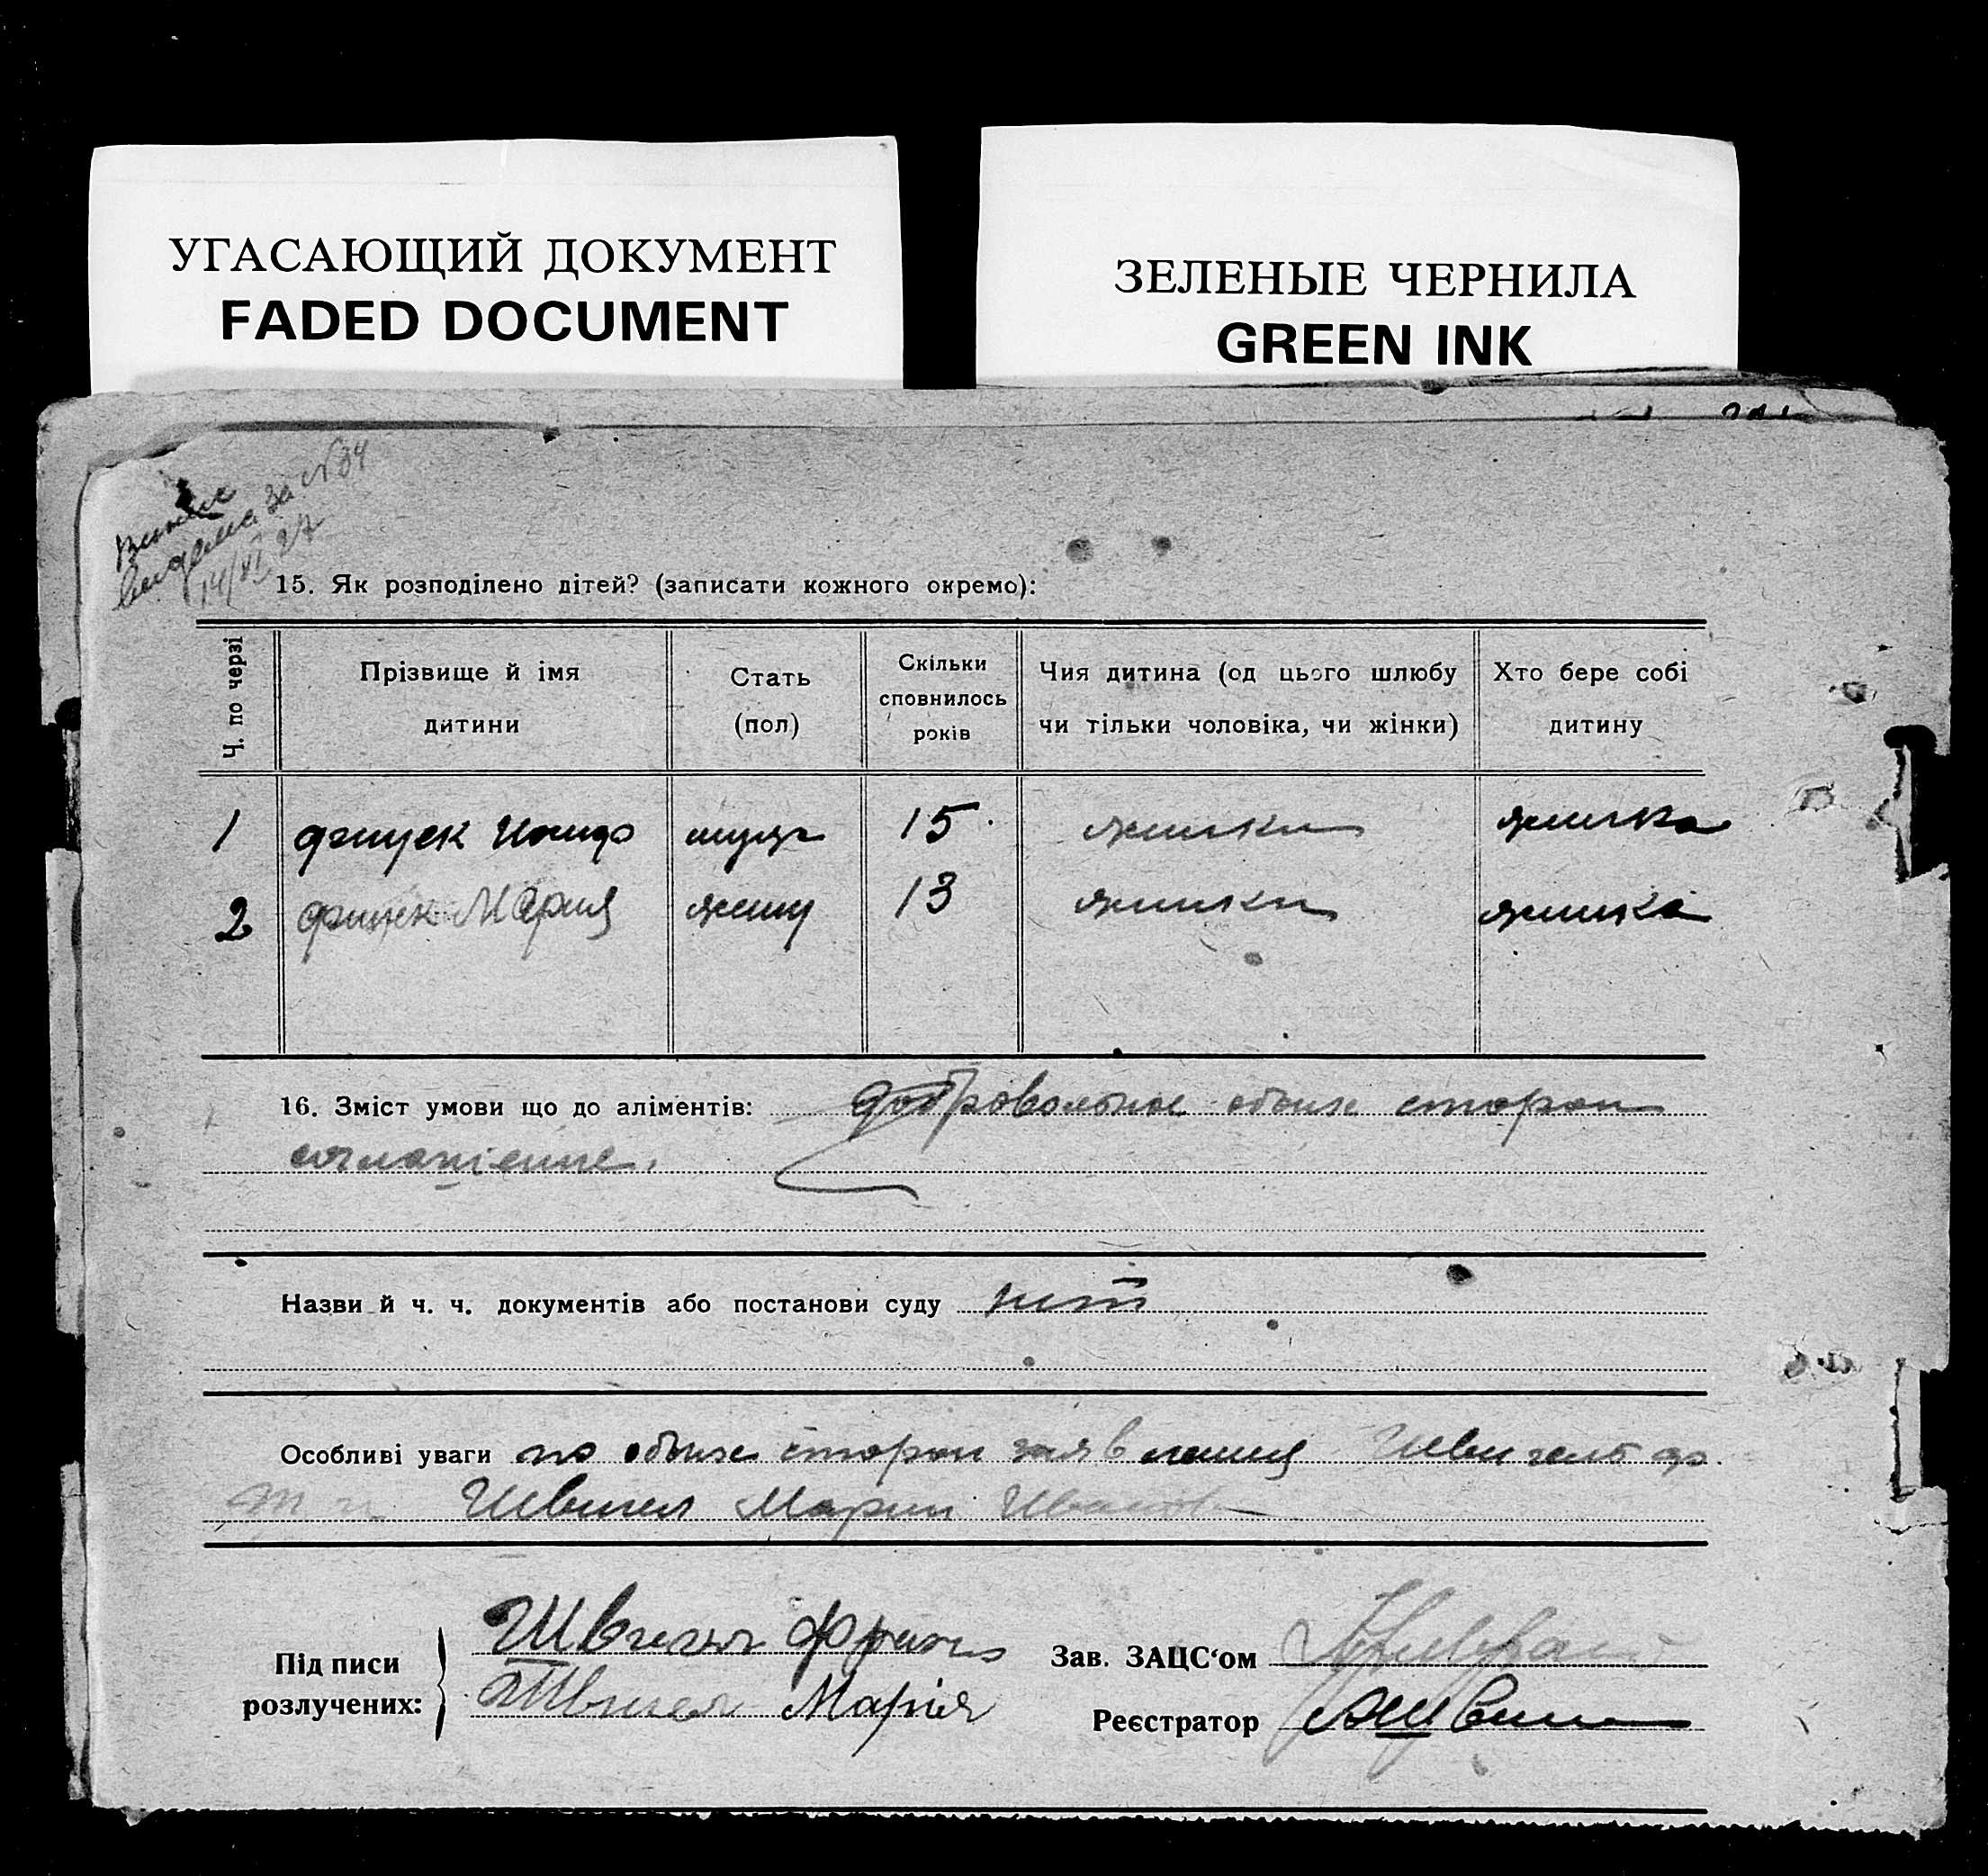 УГАСАЮЩИЙ ДОКУМЕНТ
FADED DOCUMENT
ЗЕЛЕНЫЕ ЧЕРНИЛА
GREEN INK
видана за № 34
14/XI 27
15. Як розподілено дітей? (записати кожного окремо):
Ч. по черзі
Прізвище й імя дитини
Стать (пол)
Скільки сповнилось років
Чия дитина (од цього шлюбу чи тільки чоловіка, чи жінки)
Хто бере собі дитину
1 муж 15 жинки жинка
2 Мария жину 13 жинки жинка
16. Зміст умови що до аліментів: добровольное обоих сторон
соглашение.
Назви й ч. ч. документів або постанови суду нет
Особливі уваги по обоих сторон заявления
Марии
Підписи розлучених:
Швигел Франц
Швигел Марія
Зав. ЗАЦС‘ом
Реєстратор